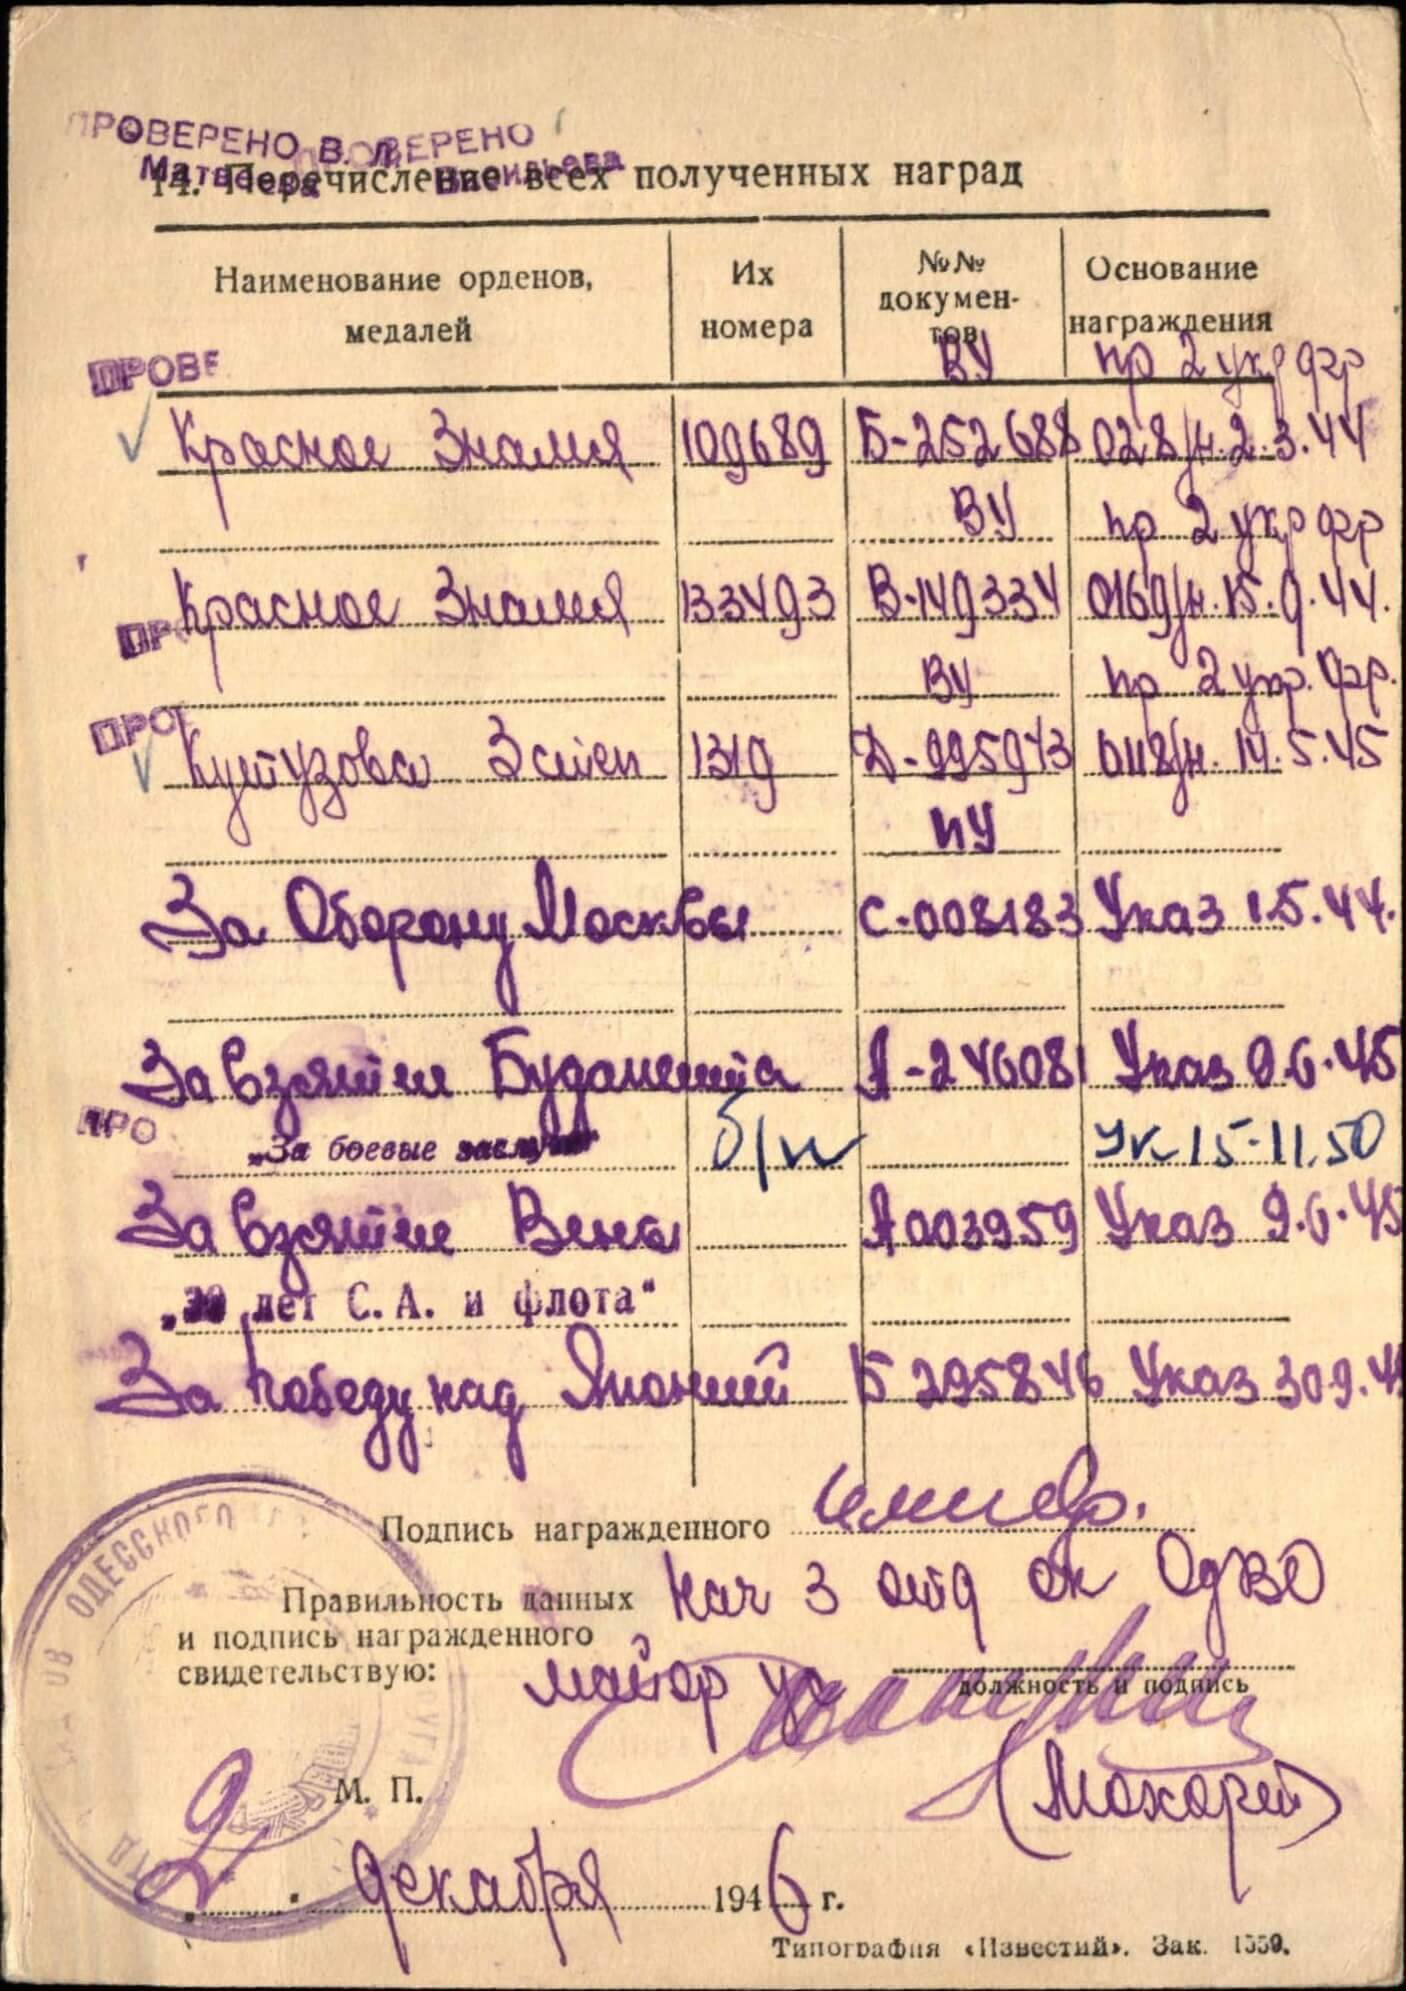 ПРОВЕРЕНО В. Л. ПРОВЕРЕНО
Матвеева Васильева
14. Перечисление всех полученных наград
Наименование орденов, медалей
Их номера
№№ документов
Основание награждения
ПРОВЕ
ВУ пр 2 укр фр
Красное Знамя 109689 Б-252688 028/н. 2.3.44
ВУ пр 2 укр фр
Красное Знамя 133493 В-149334 0169/н. 15.9.44.
ПРО
ВУ пр 2 укр. фр.
ПРОВ
Кутузова 3 степ 1319 Д-995943 0118/н. 14.5.45
ПУ
За Оборону Москвы С-008183 Указ 1.5.44.
За взятие Будапешта А-246081 Указ 9.6.45
ПРО
„За боевые заслуги“ б/н Ук 15-11.50
За взятие Вены А003959 Указ 9.6.45
„30 лет С.А. и флота“
За победу над Японией Б 295846 Указ 30.9.45
Подпись награжденного
Правильность данных
и подпись награжденного
свидетельствую:
Нач 3 отд ок ОдВО
майор
должность и подпись
М. П.
2 декабря 1946 г.
ОДЕССКОГО
Типография «Известий». Зак. 1550.